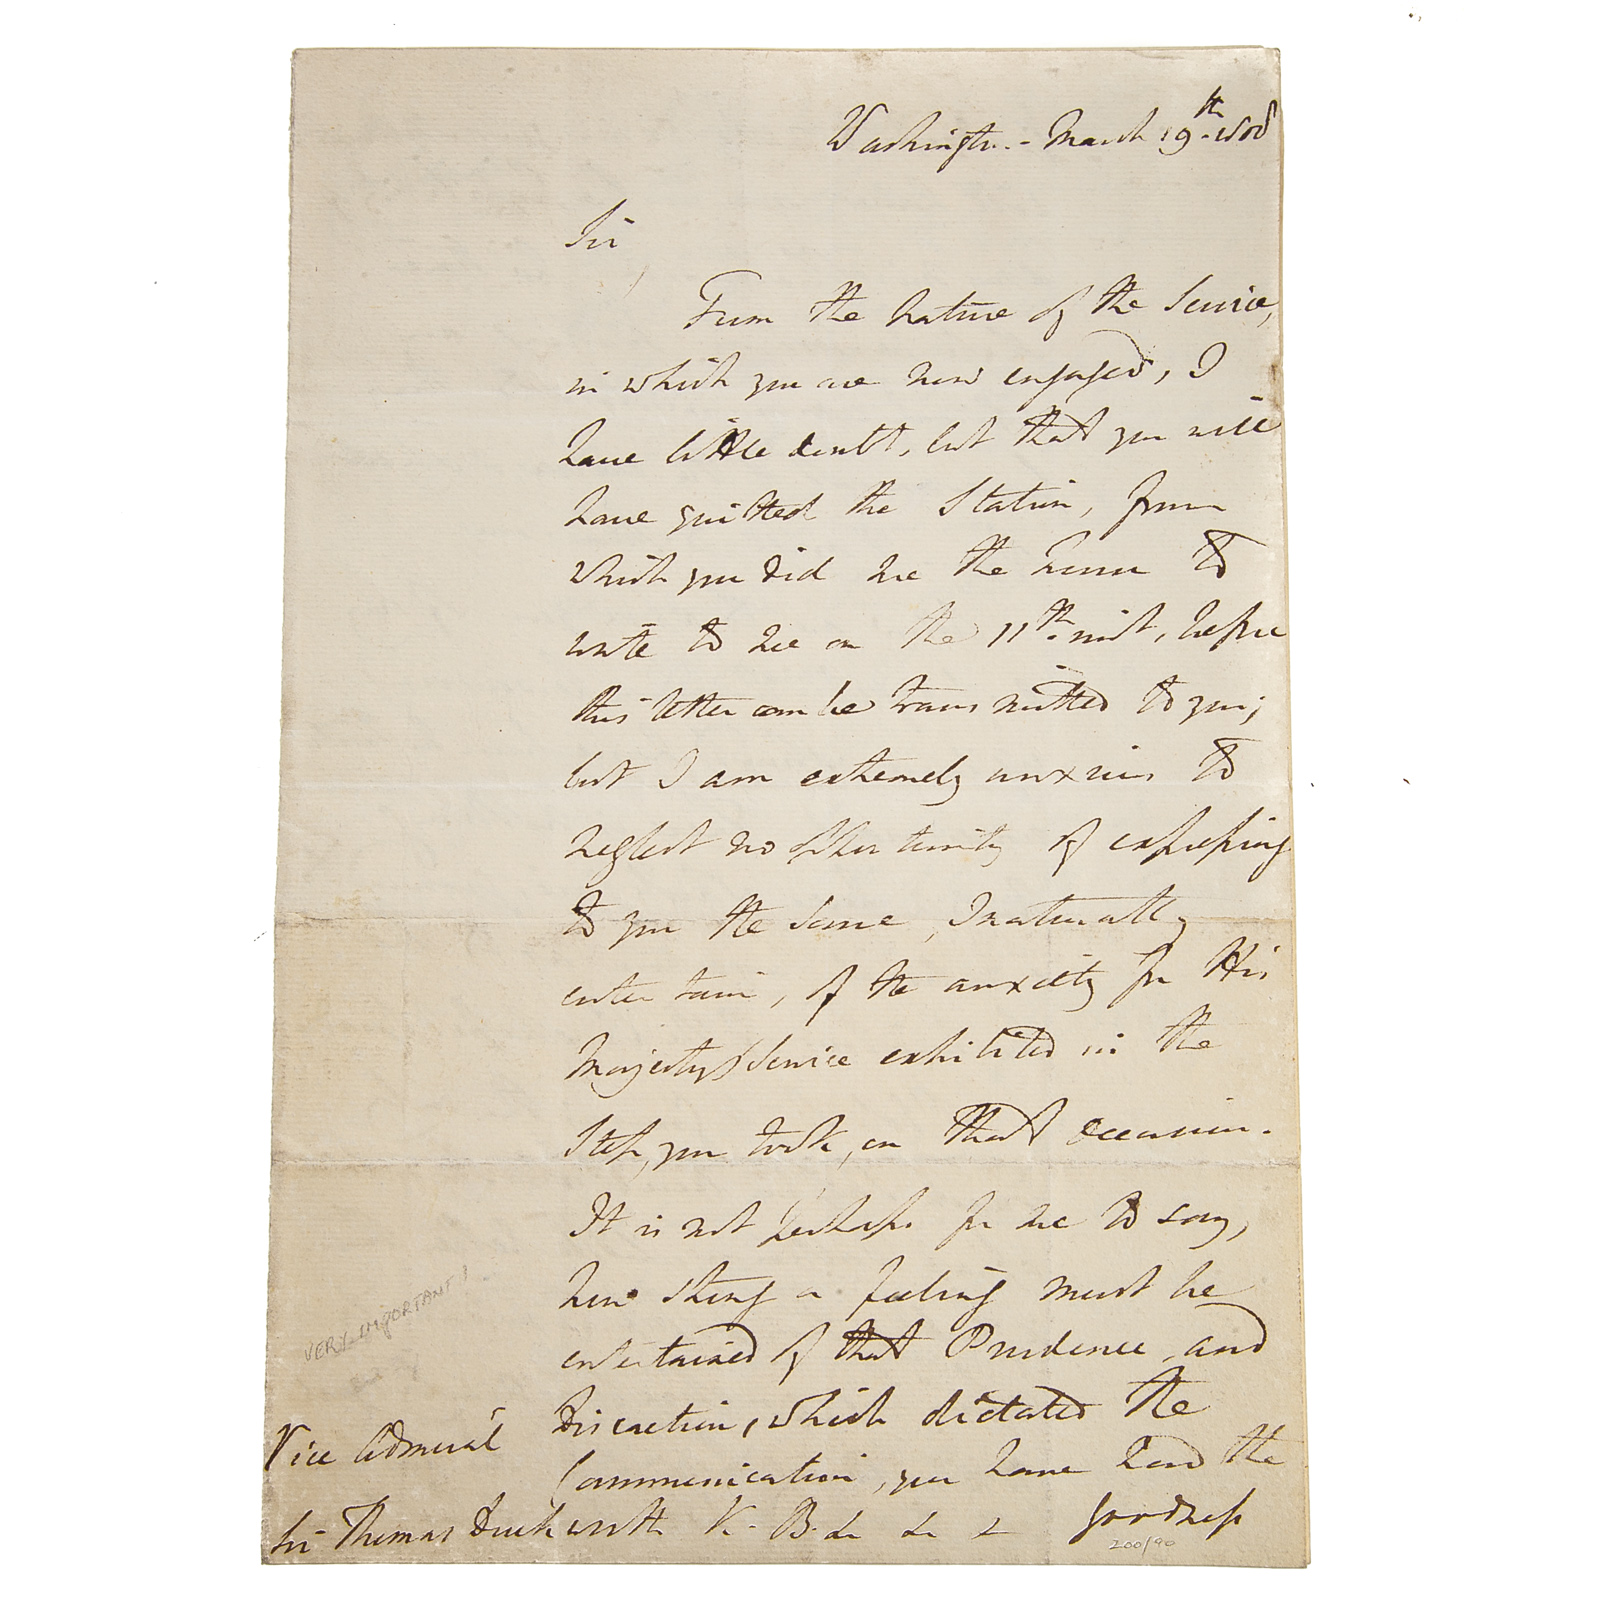 Washington - March 19th 1808
Sir
From the nature of the Service,
in which you are now engaged, I
have little doubt, but that you will
have quitted the Station, from
which you did me the honor to
write to me on the 11th inst, before
this letter can be transmitted to you;
but I am extremely anxious to
neglect no opportunity of expressing
to you the sense, I naturally
entertain, of the anxiety for His
Majesty's Service exhibited in the
Step, you took, on that occasion.
It is not perhaps for me to say,
how strong a feeling must be
entertained of that Prudence, and
Discretion, which dictated the
Communication, you have had the
goodness
VERY IMPORTANT!
Vice Admiral
Sir Thomas Duckworth K. B. &c &c &
200/90